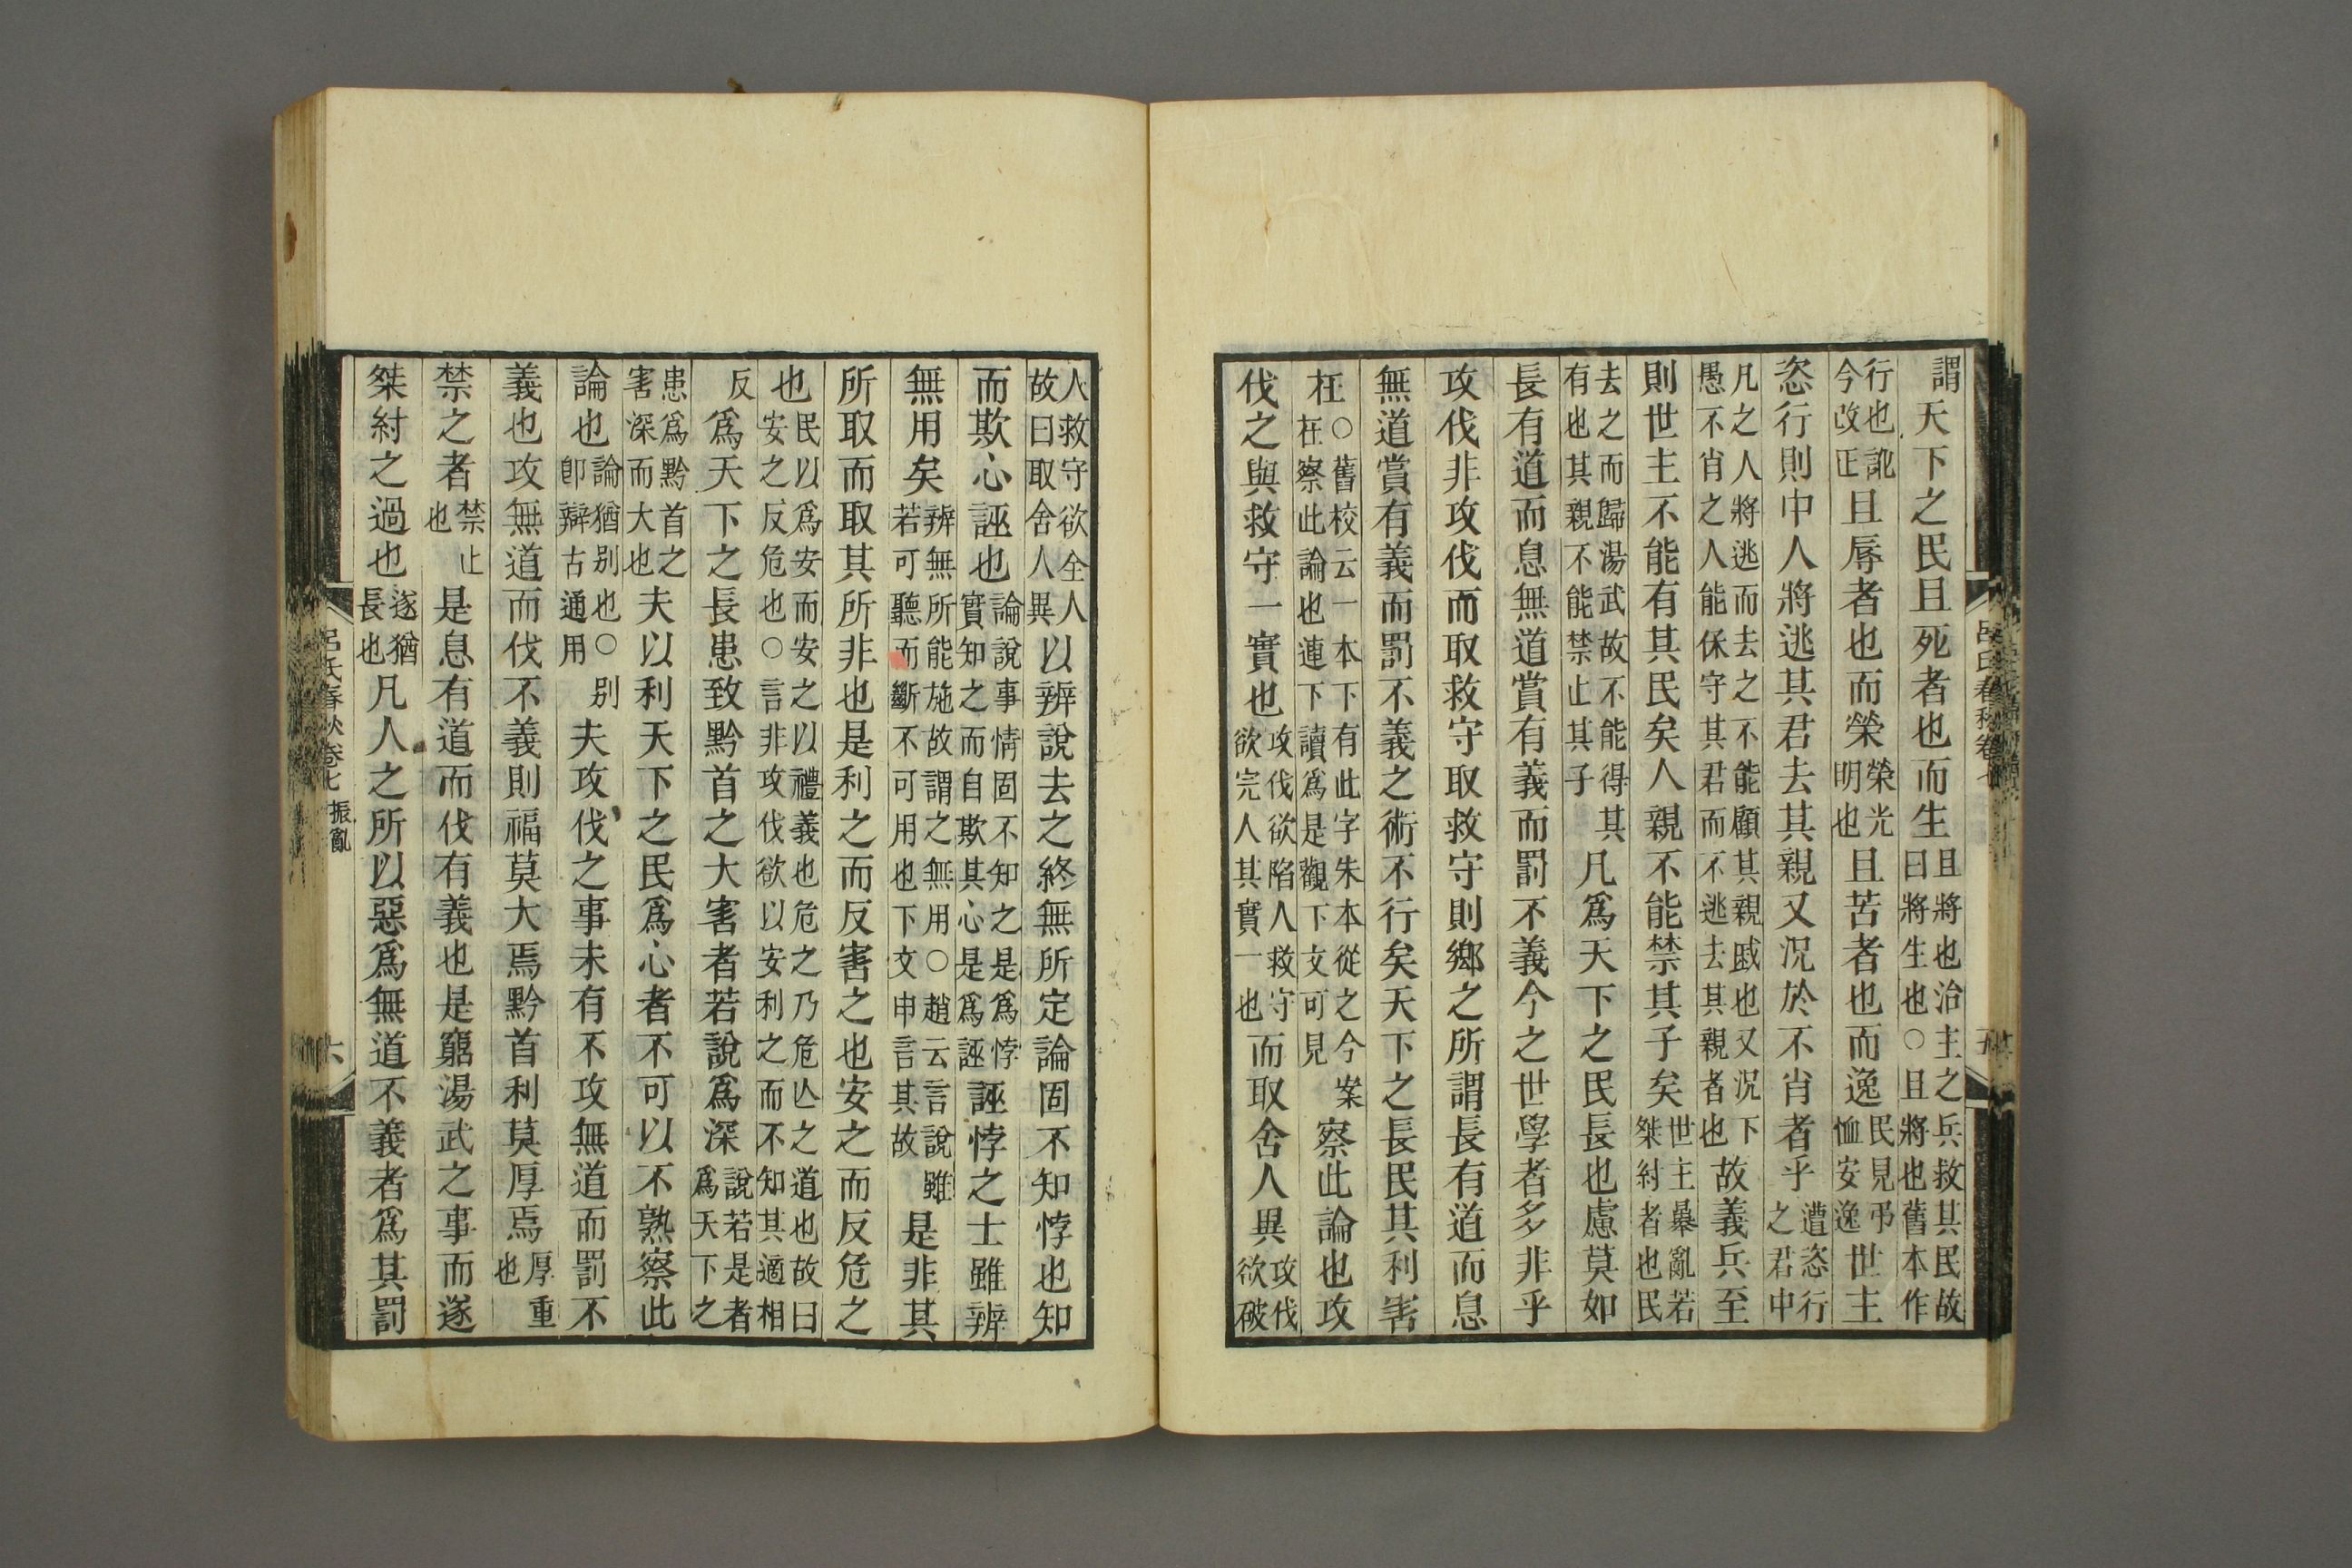 謂天下之民且死者也而生且將也治主之兵救其民故曰將生也○且將也舊本作
行也訛今改正且辱者也而榮榮光明也且苦者也而逸民見弔恤安逸世主
恣行則中人將逃其君去其親又況於不肖者乎遭恣行之君中
凡之人將逃而去之不能顧其親戚也又況下愚不肖之人能保守其君而不逃去其親者也故義兵至
則世主不能有其民矣人親不能禁其子矣世主暴亂若桀紂者也民
去之而歸湯武故不能得其有也其親不能禁止其子凡爲天下之民長也慮莫如
長有道而息無道賞有義而罰不義今之世學者多非乎
攻伐非攻伐而取救守取救守則鄉之所謂長有道而息
無道賞有義而罰不義之術不行矣天下之長民其利害
在○舊校云一本下有此字朱本從之今案在察此論也連下讀爲是觀下文可見察此論也攻
伐之與救守一實也攻伐欲陷人救守欲完人其實一也而取舍人異攻伐欲破
人救守欲全人故曰取舍人異以辨說去之終無所定論固不知悖也知
而欺心誣也論說事情固不知之是爲悖實知之而自欺其心是爲誣誣悖之士雖辨
無用矣辨無所能施故謂之無用○趙云言說雖若可聽而斷不可用也下文申言其故是非其
所取而取其所非也是利之而反害之也安之而反危之
也民以爲安而安之以禮義也危之乃危亾之道也故曰安之反危也○言非攻伐欲以安利之而不知其適相
反爲天下之長患致黔首之大害者若說爲深說若是者爲天下之
患爲黔首之害深而大也夫以利天下之民爲心者不可以不熟察此
論也論猶别也○别卽辯古通用夫攻伐之事未有不攻無道而罰不
義也攻無道而伐不義則福莫大焉黔首利莫厚焉厚重也
禁之者禁止也是息有道而伐有義也是窮湯武之事而遂
桀紂之過也遂猶長也凡人之所以惡爲無道不義者爲其罰
呂氏春秋卷七 振亂
六